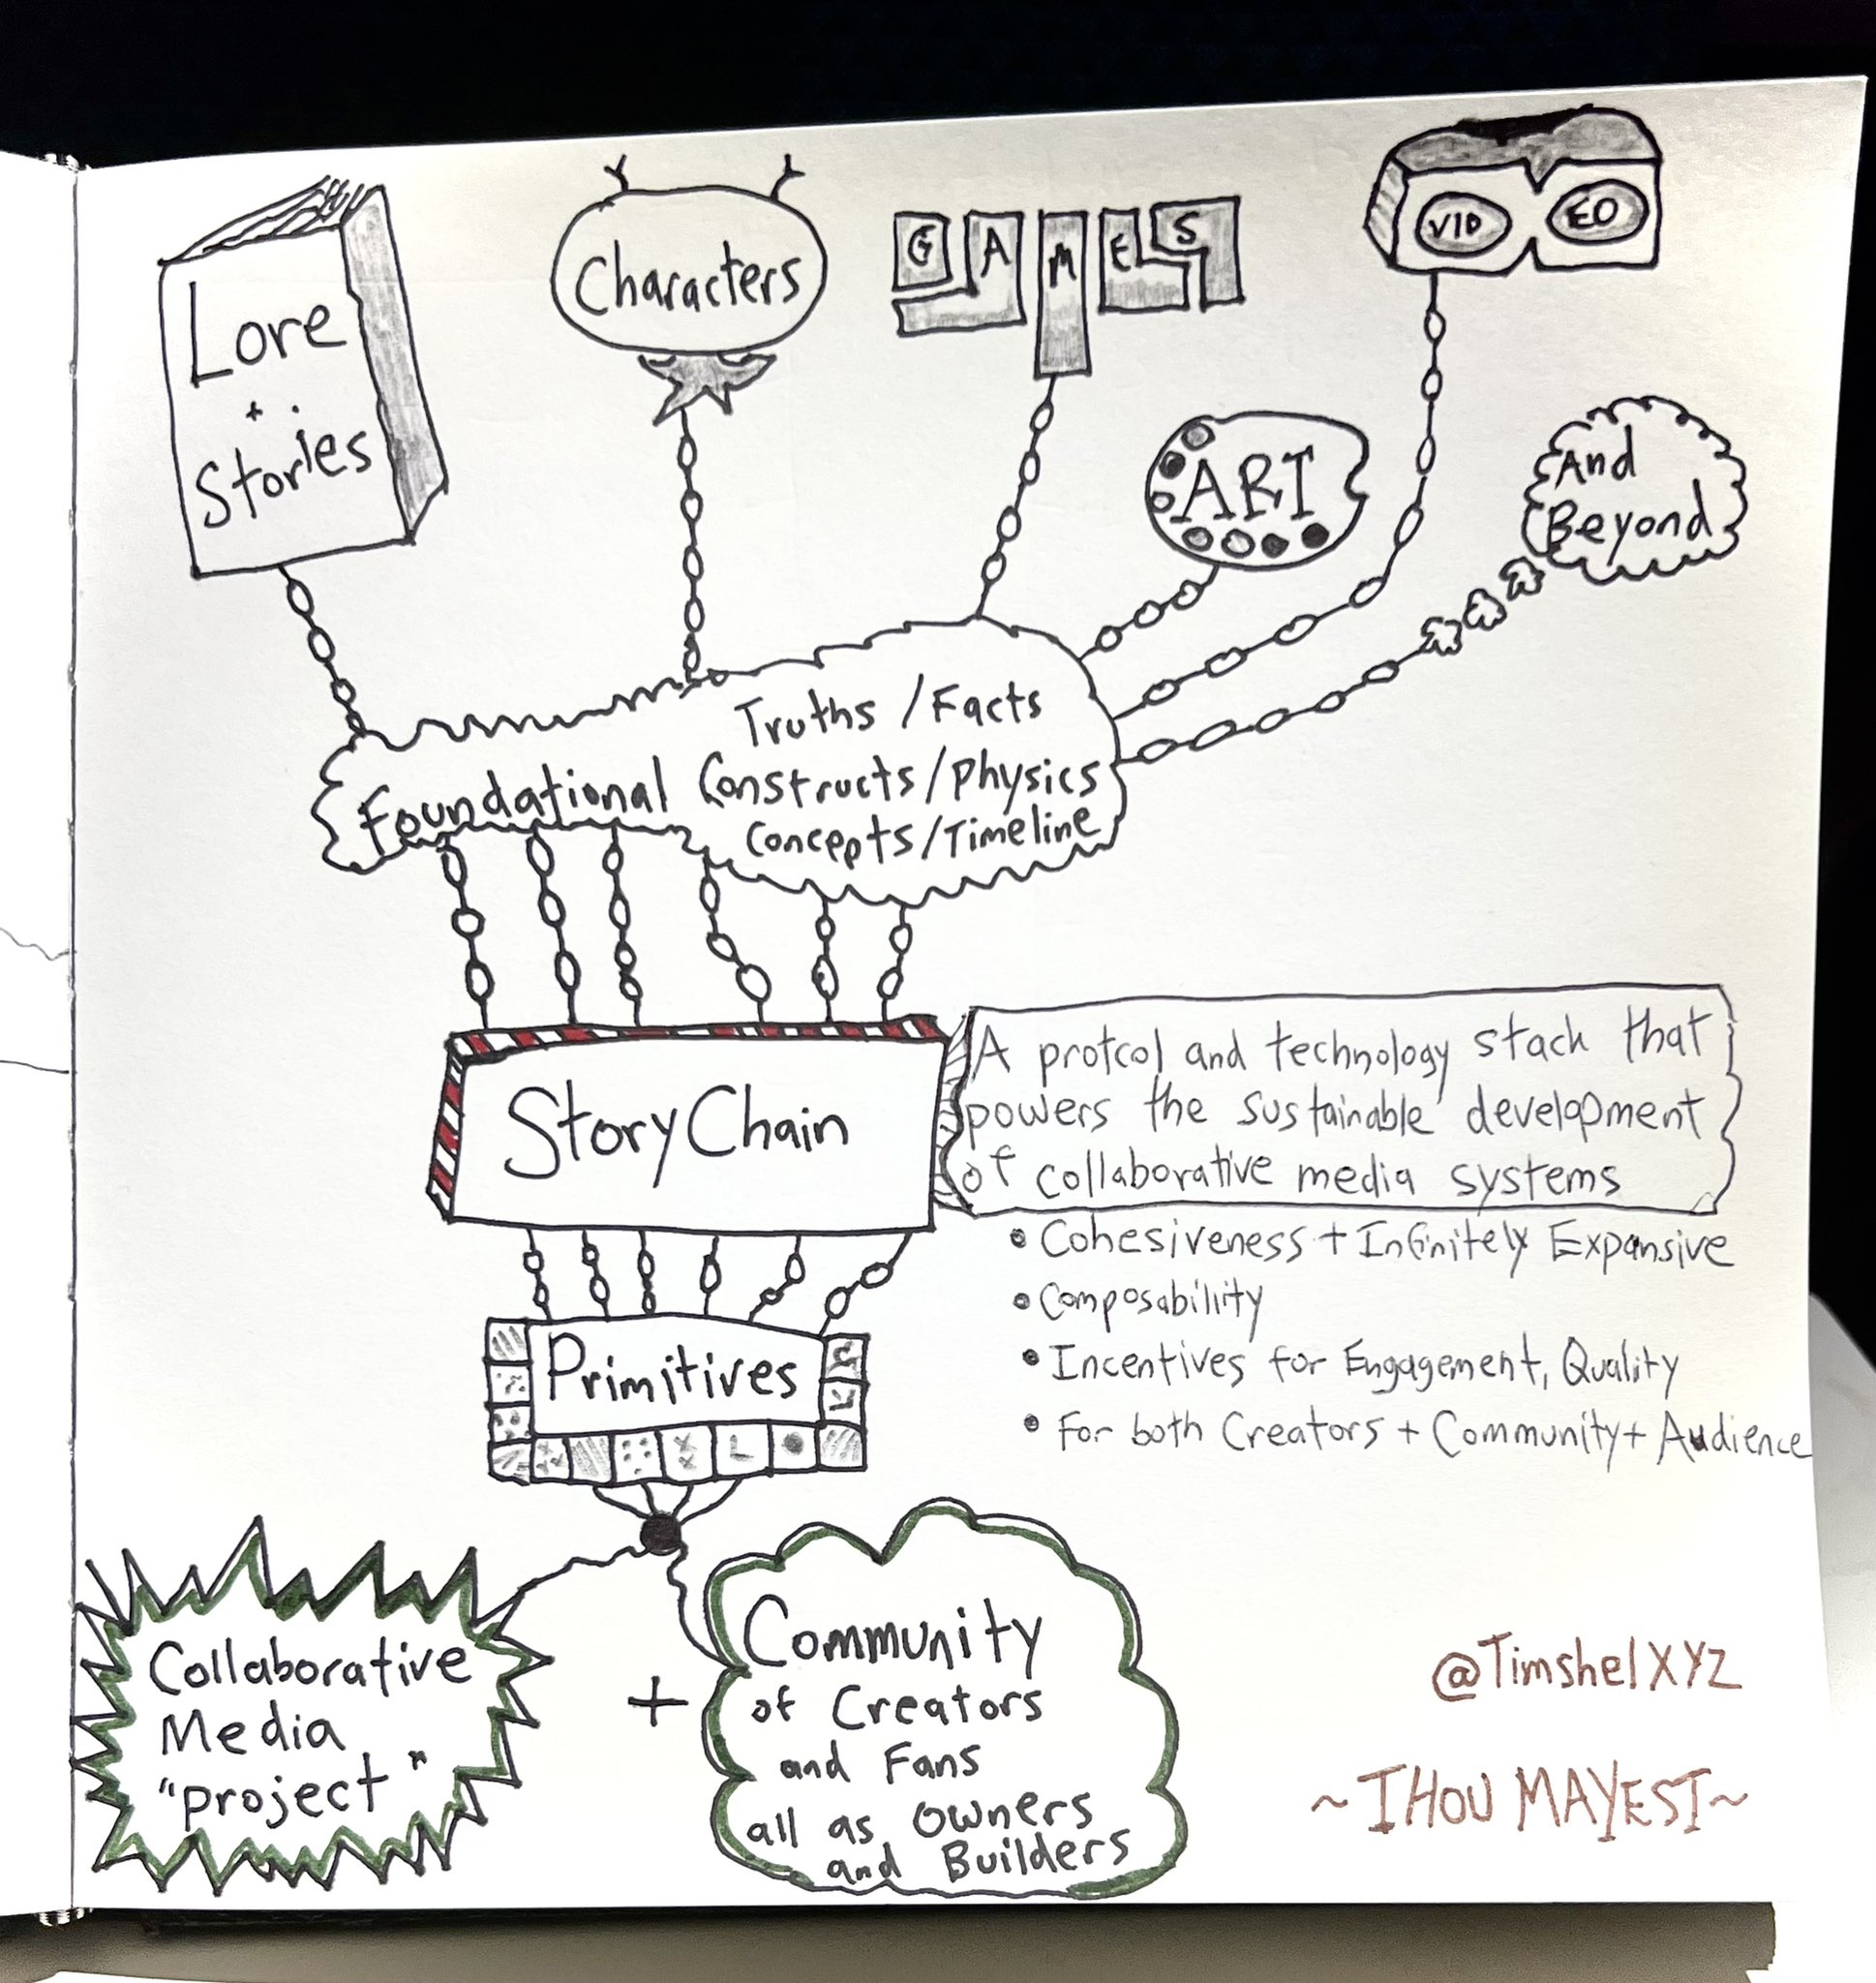 Lore
+
Stories
Characters
GAMES
VID EO
ART
And
Beyond
Truths / Facts
Foundational Constructs / Physics
Concepts / Timeline
StoryChain
A protcol and technology stack that
powers the sustainable development
of collaborative media systems
• Cohesiveness + Infinitely Expansive
• Composabililty
• Incentives for Engagement, Quality
• For both Creators + Community + Audience
Primitives
Collaborative
Media
"project"
+
Community
of Creators
and Fans
all as Owners
and Builders
@TimshelXYZ
~THOU MAYEST~